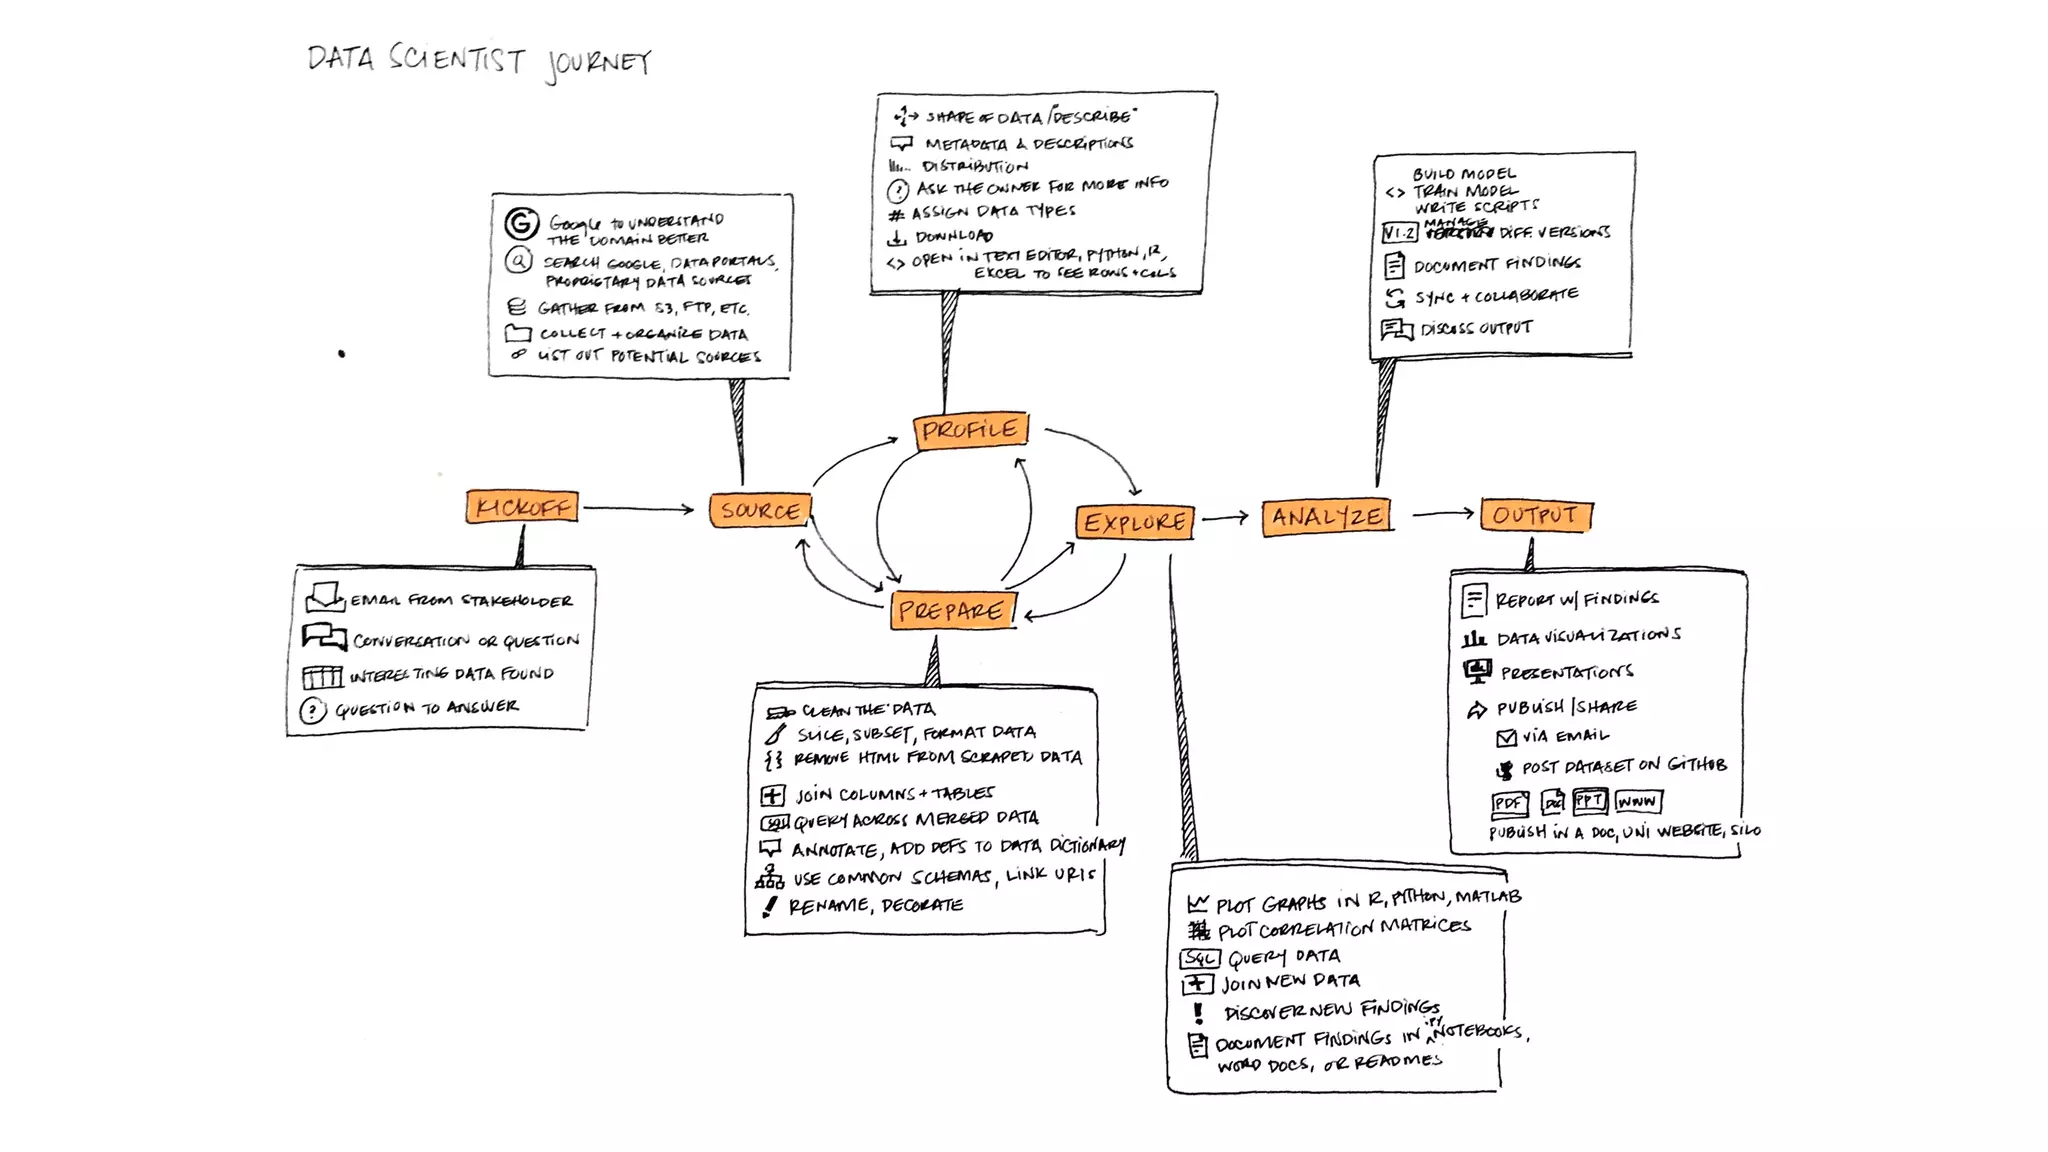 DATA SCIENTIST JOURNEY
SHAPE OF DATA/"DESCRIBE"
METADATA & DESCRIPTIONS
DISTRIBUTION
? ASK THE OWNER FOR MORE INFO
# ASSIGN DATA TYPES
DOWNLOAD
<> OPEN IN TEXT EDITOR, PYTHON, R,
EXCEL TO SEE ROWS + COLS
BUILD MODEL
<> TRAIN MODEL
WRITE SCRIPTS
MANAGE
V1.2 DIFF. VERSIONS
DOCUMENT FINDINGS
SYNC + COLLABORATE
DISCUSS OUTPUT
G Google to UNDERSTAND
THE DOMAIN BETTER
SEARCH GOOGLE, DATA PORTALS,
PROPRIETARY DATA SOURCES
GATHER FROM S3, FTP, ETC.
COLLECT + ORGANIZE DATA
LIST OUT POTENTIAL SOURCES
PROFILE
KICKOFF
SOURCE
EXPLORE
ANALYZE
OUTPUT
PREPARE
EMAIL FROM STAKEHOLDER
CONVERSATION OR QUESTION
INTERECTING DATA FOUND
? QUESTION TO ANSWER
CLEAN THE DATA
SLICE, SUBSET, FORMAT DATA
{} REMOVE HTML FROM SCRAPED DATA
+ JOIN COLUMNS + TABLES
SQL QUERY ACROSS MERGED DATA
ANNOTATE, ADD DEFS TO DATA DICTIONARY
USE COMMON SCHEMAS, LINK URIS
! RENAME, DECORATE
REPORT W/ FINDINGS
DATA VISUALIZATIONS
PRESENTATIONS
PUBLISH/SHARE
VIA EMAIL
POST DATASET ON GITHUB
PDF DOC PPT WWW
PUBLISH IN A DOC, UNI WEBSITE, SILO
PLOT GRAPHS IN R, PYTHON, MATLAB
PLOT CORRELATION MATRICES
SQL QUERY DATA
+ JOIN NEW DATA
! DISCOVER NEW FINDINGS
DOCUMENT FINDINGS IN .PY NOTEBOOKS,
WORD DOCS, OR READMES